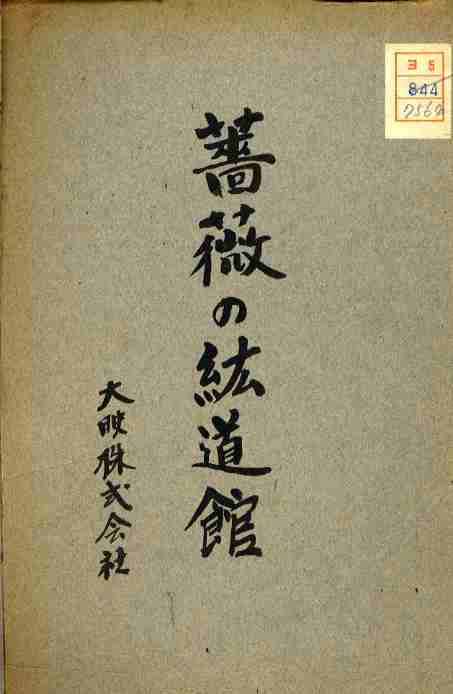 薔薇の紘道館
大映株式会社
ヨ5
844